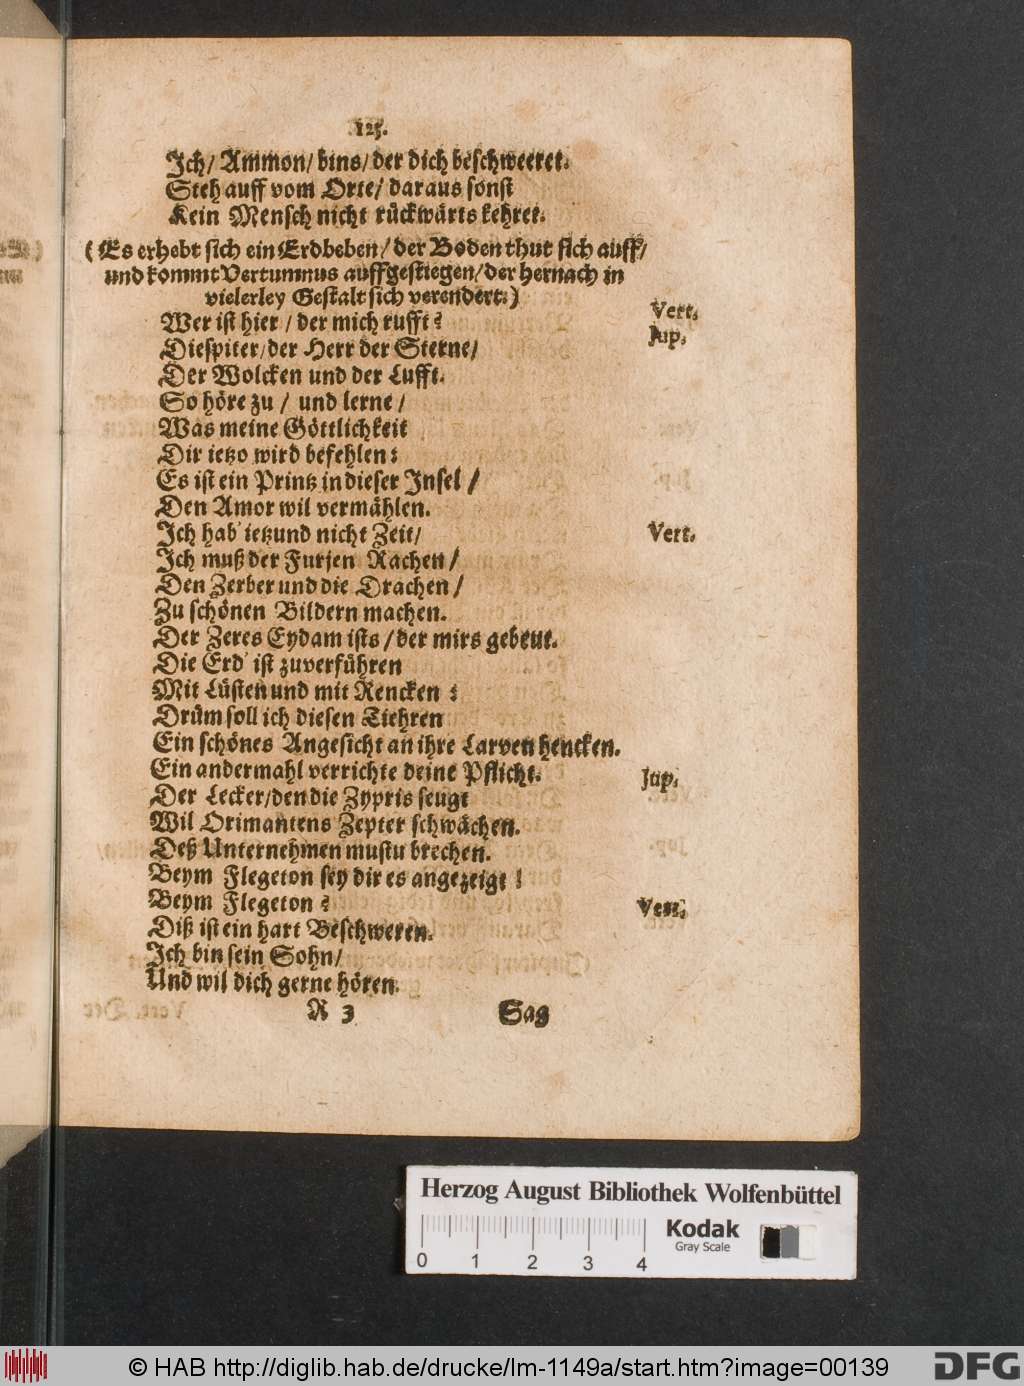 125.
Jch/ Ammon/ bins/ der dich beschweeret.
Steh auff vom Orte/ daraus sonst
Kein Mensch nicht rückwärts kehret.
(Es erhebt sich ein Erdbeben/ der Boden thut sich auff/
und kommt Vertumnus auffgestiegen/ der hernach in
vielerley Gestalt sich verendert.)
Wer ist hier / der mich rufft? Vert.
Diespiter/ der Herr der Sterne/ Jup.
Der Wolcken und der Lufft.
So höre zu / und lerne /
Was meine Göttlichkeit
Dir ietzo wird befehlen:
Es ist ein Printz in dieser Jnsel /
Den Amor wil vermählen.
Jch hab' ietzund nicht Zeit/ Vert.
Jch muß der Furjen Rachen /
Den Zerber und die Drachen /
Zu schönen Bildern machen.
Der Zeres Eydam ists / der mirs gebeut.
Die Erd' ist zuverführen
Mit Lüsten und mit Rencken :
Drüm soll ich diesen Tiehren
Ein schönes Angesicht an ihre Larven hencken.
Ein andermahl verrichte deine Pflicht. Jup.
Der Lecker/ den die Zypris seugt
Wil Orimantens Zepter schwächen.
Deß Unternehmen mustu brechen.
Beym Flegeton sey dir es angezeigt!
Beym Flegeton? Vert.
Diß ist ein hart Beschweren.
Jch bin sein Sohn/
Und wil dich gerne hören.
R 3 Sag
Herzog August Bibliothek Wolfenbüttel
0 1 2 3 4
Kodak
Gray Scale
© HAB http://diglib.hab.de/drucke/lm-1149a/start.htm?image=00139
DFG